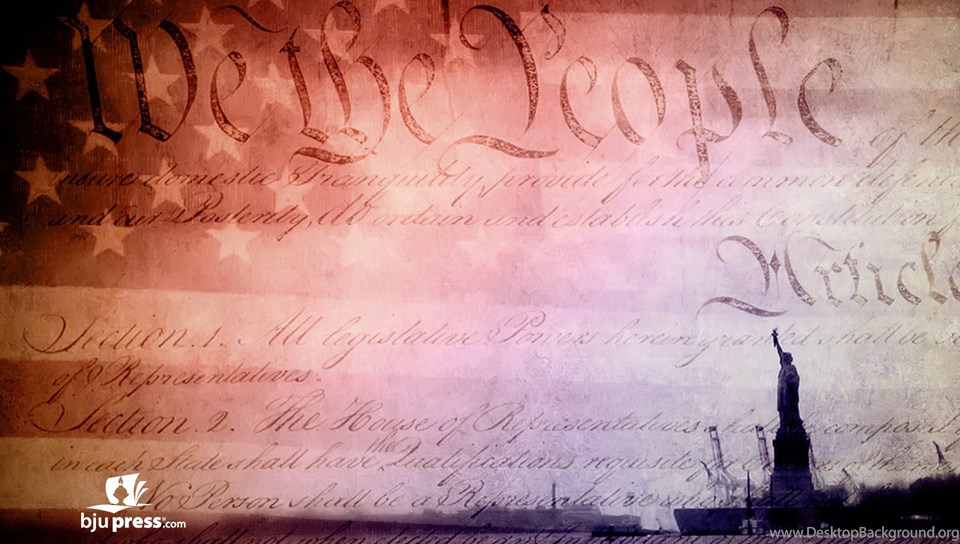 We the People of th
nsure domestic Tranquility, provide for the common defence
and our Posterity, do ordain and establish this Constitution
Article
Section. 1. All legislative Powers herein granted shall be
of Representatives.
Section. 2. The House of Representatives shall be composed
the
in each State shall have Qualifications requisite
No Person shall be a Representative who shall
bju press.com
www.DesktopBackground.org